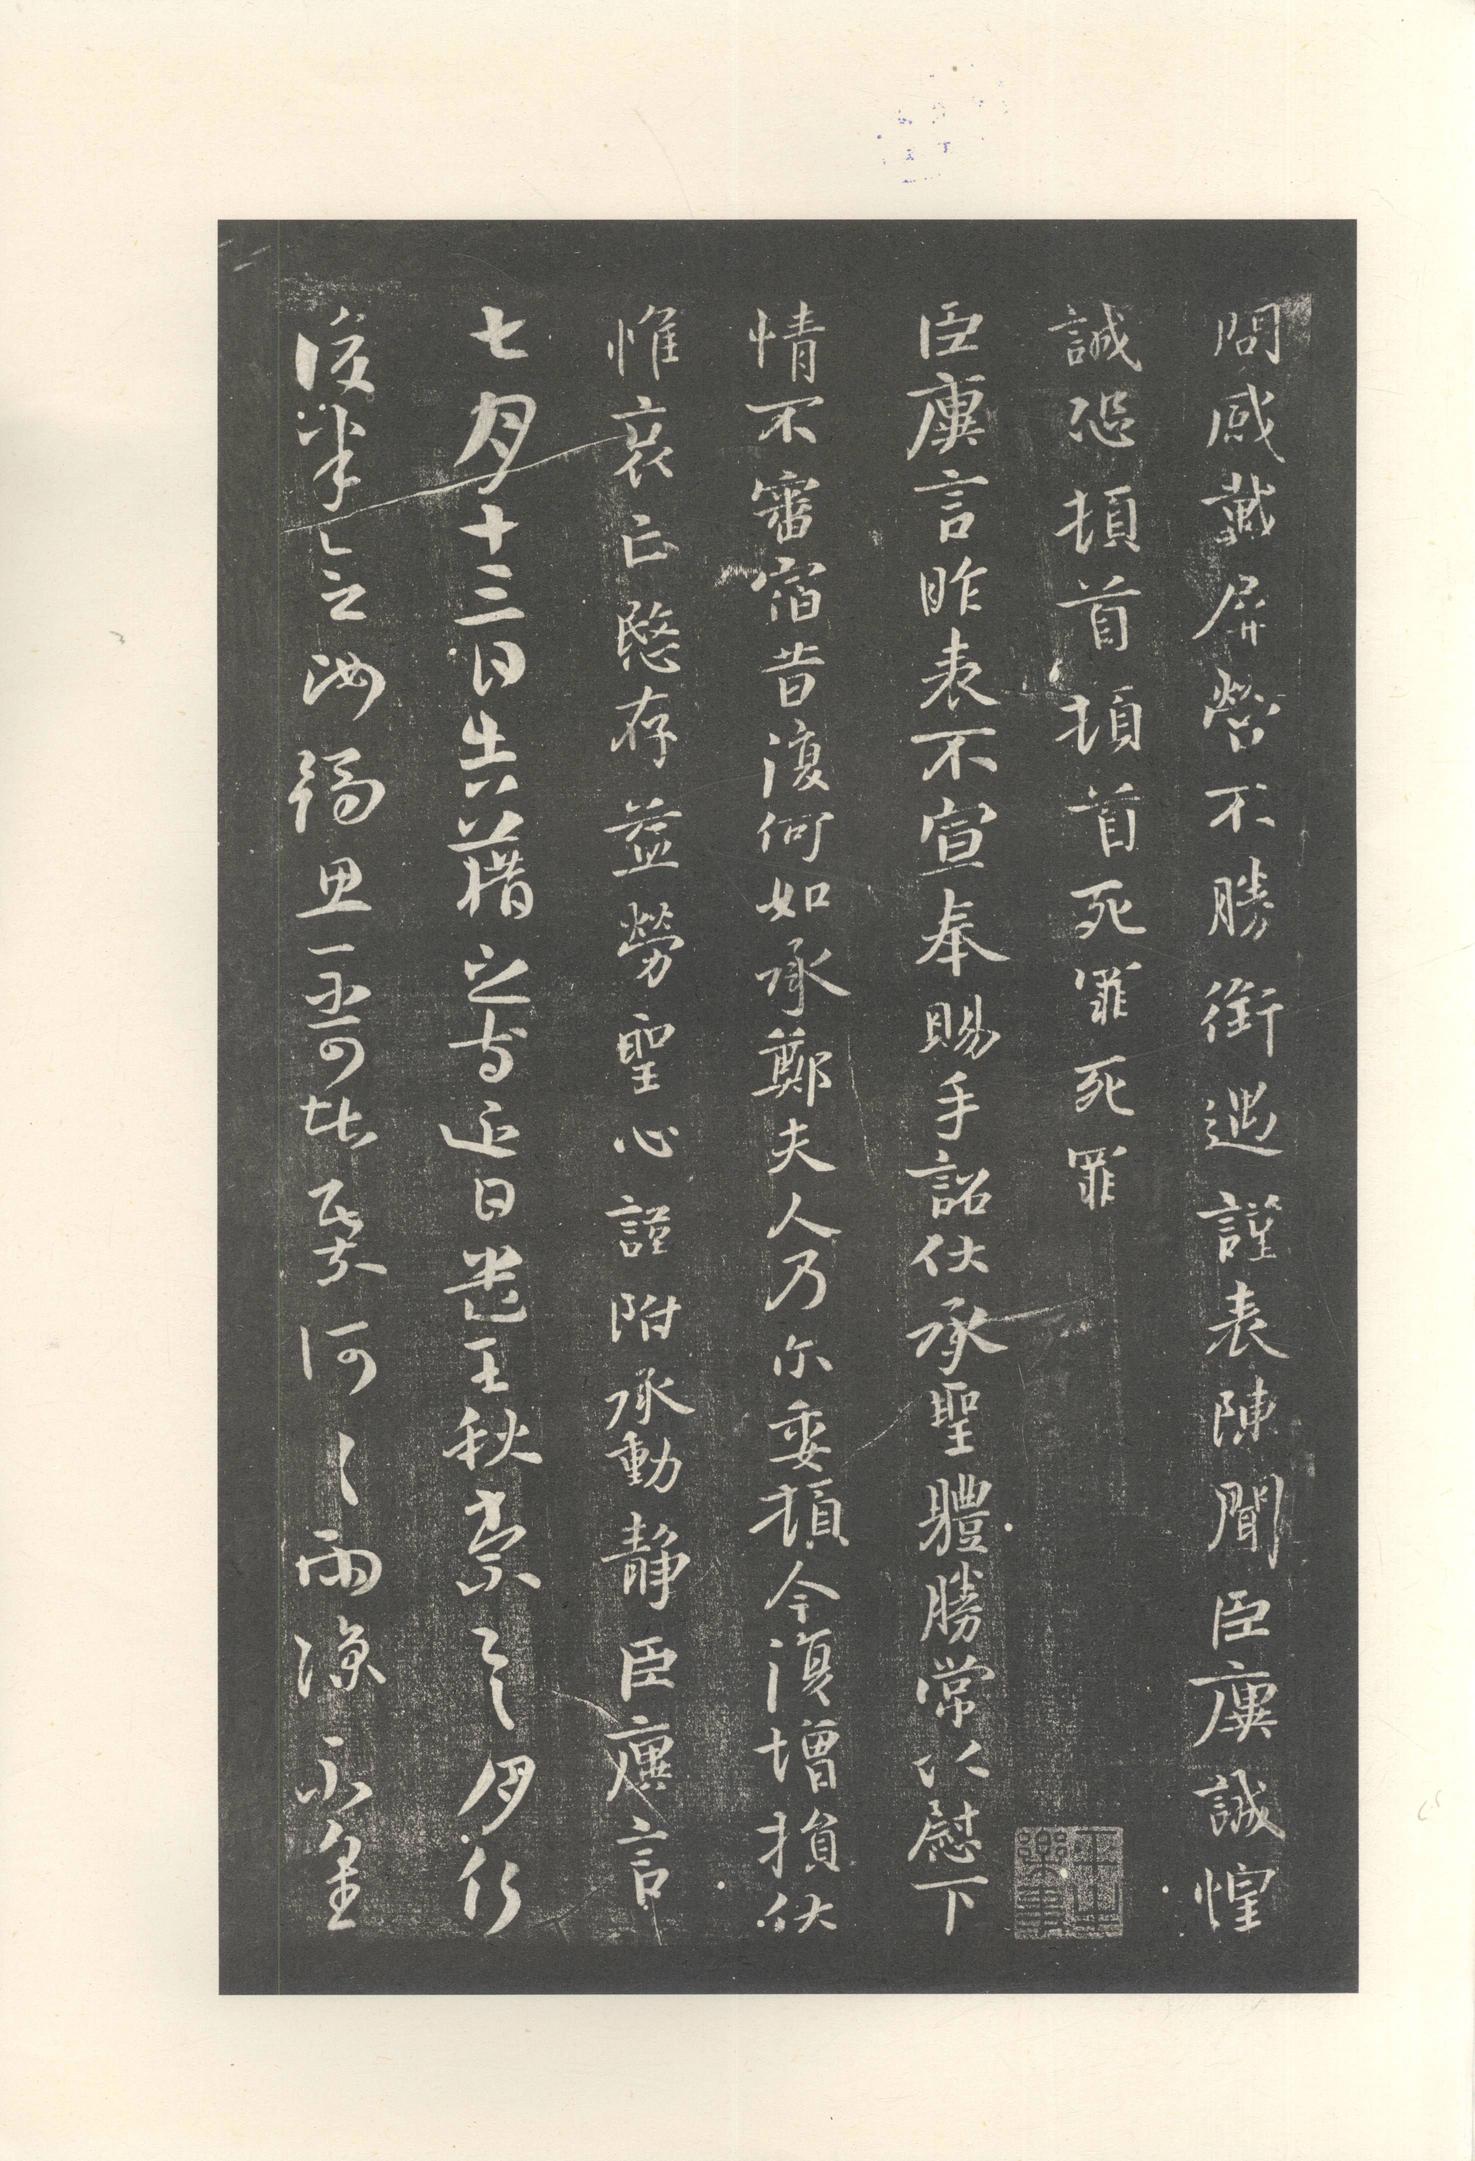 問感戴屏營不勝銜遇謹表陳聞臣廙誠惶
誠恐頓首頓首死罪死罪
臣廙言昨表不宣奉賜手詔伏承聖體勝常以慰下
情不審宿昔復何如承鄭夫人乃尔委頓今復增損伏
惟哀亡愍存益勞聖心謹附承動靜臣廙言
七月十三日告藉之等近日遣王秋崇之月行
復半〻之汝獨思不可堪柰何〻雨涼不審
平生樂事